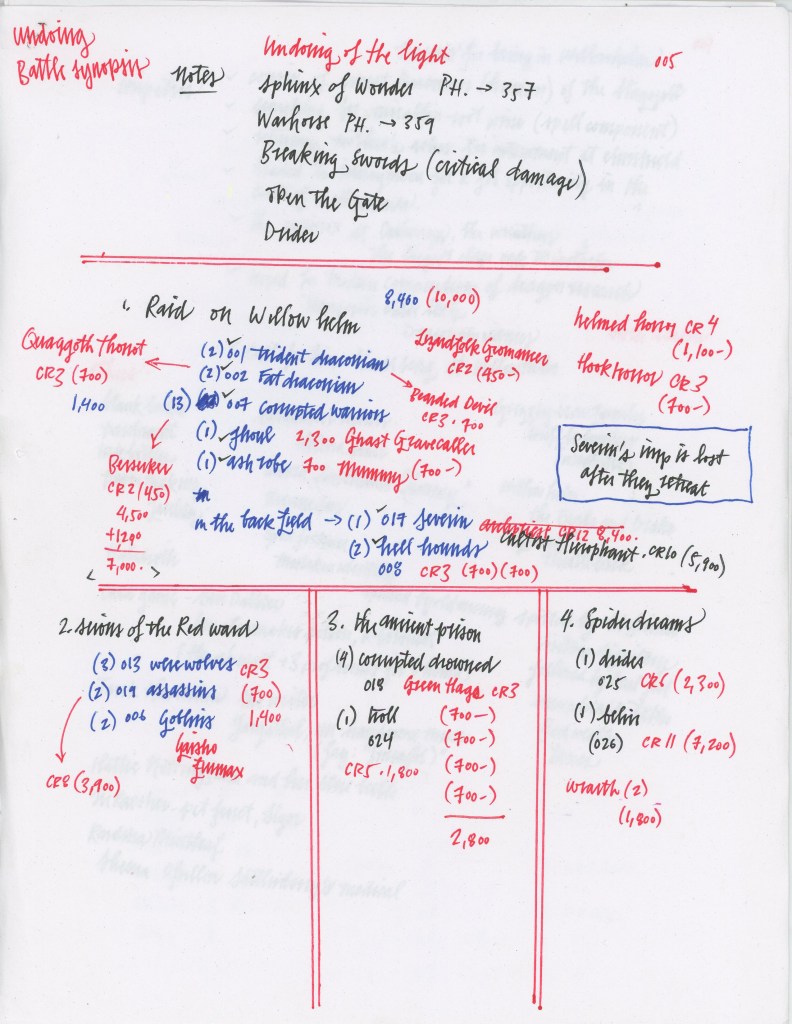 undoing
Battle synopsis
notes
undoing of the light
005
Sphinx of Wonder P.H. → 357
Warhorse P.H. → 359
Breaking Swords (critical damage)
Open the Gate
Drider
1. Raid on Willow helm
8,400 (10,000)
(2) 001 trident draconian
(2) 002 Fat draconian
(13) 007 corrupted warriors
(1) ghoul 2,300 Ghast Gravecaller
(1) ash robe 700 Mummy (700-)
in
in the back field → (1) 017 Severin archpriest CR12 8,400.
Cultist Hierophant. CR10 (5,900)
(2) hell hounds
008 CR3 (700) (700)
Quaggoth Thonot
CR3 (700)
1,400
Berserker
CR2/450)
4,500
+1200
7,000.
< >
Lizardfolk Geomancer
CR2 (450-)
Bearded Devil
CR3 · 700
helmed horror CR4
(1,100-)
Hook horror CR3
(700-)
Severin's imp is lost
after they retreat
2. Scions of the Red ward
(2) 013 werewolves CR3
(2) 019 assassins (700)
(2) 006 Goblins 1,400
CR8 (3,900)
3. the ancient prison
(4) corrupted drowned
018 Green Hags CR3
(1) troll (700-)
024 (700-)
CR5 · 1,800 (700-)
(700-)
2,800
4. Spider dreams
(1) drider
025 CR6 (2,300)
(1) belin
(026) CR11 (7,200)
wraith (2)
(1,800)